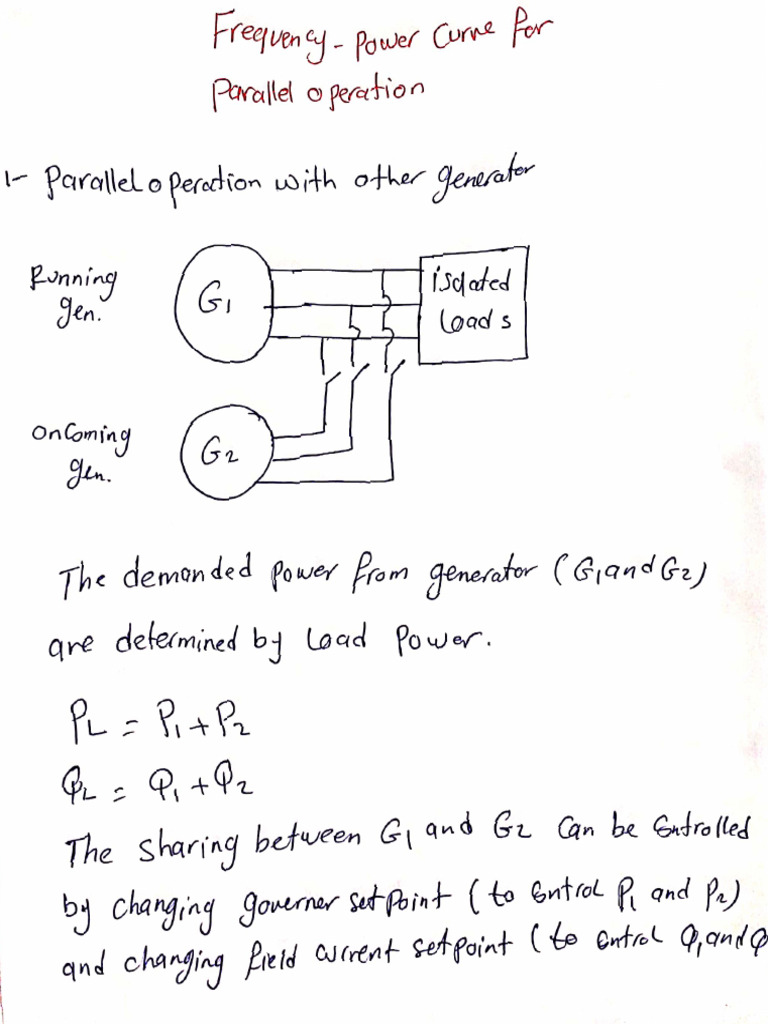 Frequency - Power Curve for
Parallel operation
1- Parallel operation with other generator
Running
gen.
G1
isolated
Loads
OnComing
gen.
G2
The demanded power from generator (G1 and G2)
are determined by Load Power.
PL = P1 + P2
QL = Q1 + Q2
The sharing between G1 and G2 Can be Controlled
by changing governer setPoint (to Control P1 and P2)
and changing field current setpoint (to Control Q1 and Q